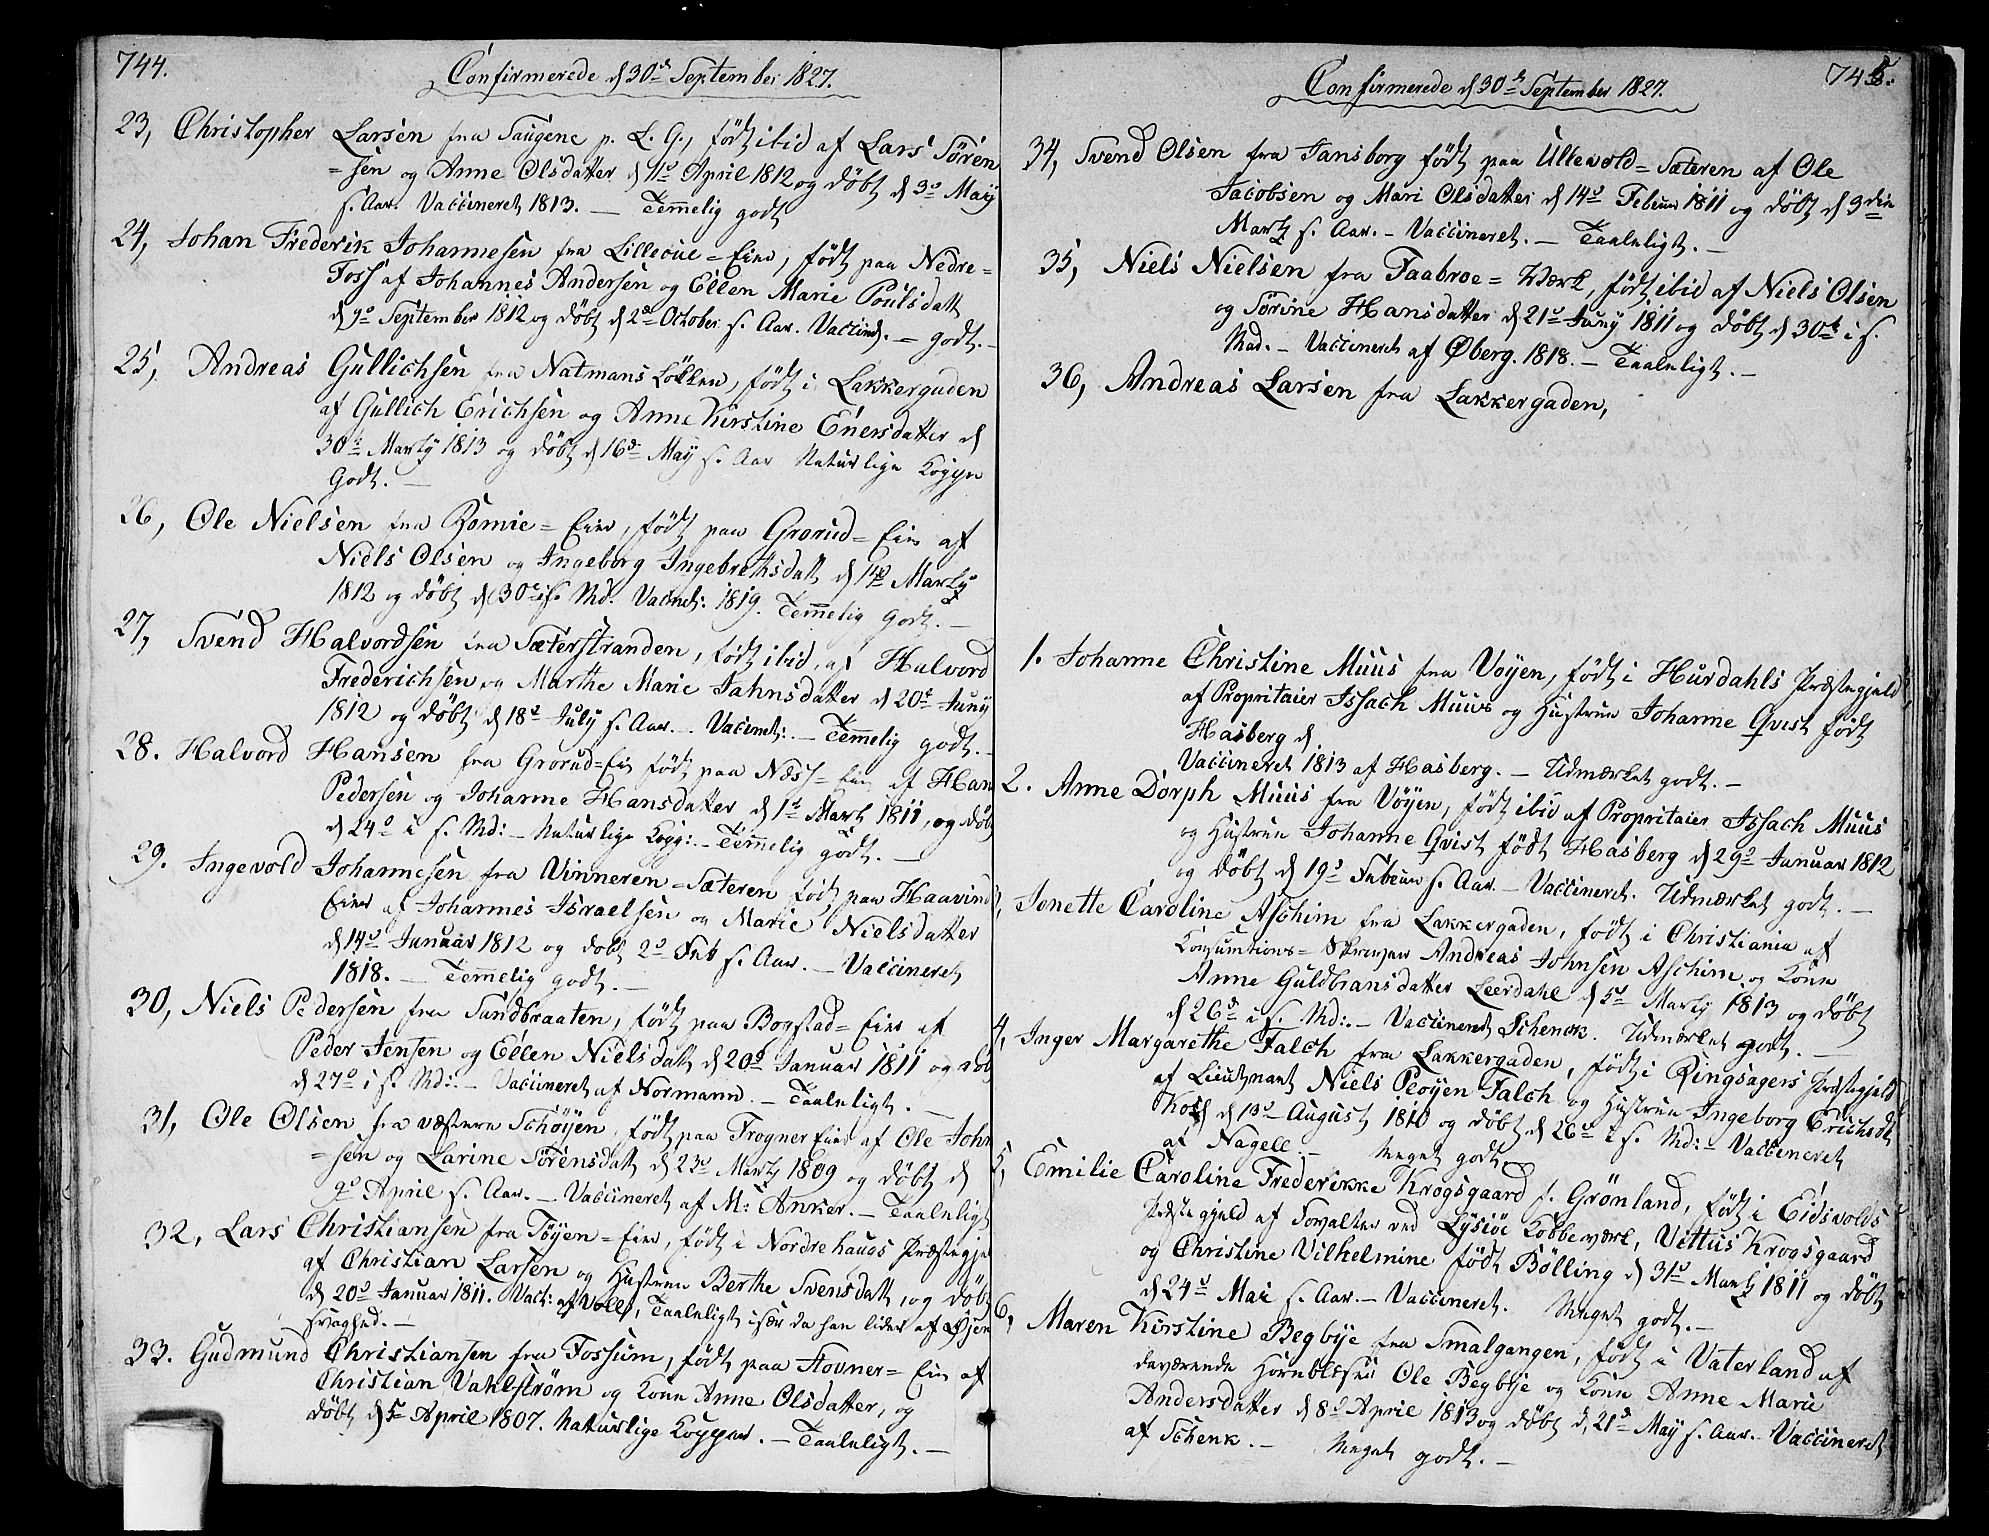 744.
Confirmerede d 30d September 1827.
23, Christopher Larsen fra Saugene p. L. G., født ibid af Lars Sören
=sen og Anne Olsdatter d 11d April 1812 og døbt d 3d May
s. Aar. Vaccineret 1813. — Temmelig godt
24, Johan Frederik Johannesen fra Lilleoue=Eier, født paa Nedre=
Foss af Johannes Andersen og Ellen Marie Poulsdatt
d 9d September 1812 og døbt d 2d October s. Aar. Vaccined. — godt.—
25, Andreas Gullichsen fra Natmans Løkken, født i Lakkergaden
af Gullich Erichsen og Anne Kirstine Enersdatter d
30t Marty 1813 og døbt d 16d May s. Aar Naturlige Kopper
Godt. —
26, Ole Nielsen fra Romie=Eier, født paa Grorud=Eier af
Niels Olsen og Ingeborg Ingebrethsdatt d 14d Marty
1812 og døbt d 30t i s. Md. Vaccinet: 1819. Temmelig Godt. —
27, Svend Halvordsen fra Sæterstranden, født ibid, af Halvord
Frederichsen og Marthe Marie Jahnsdatter d 20t Juny
1812 og døbt d 18d July s. Aar. — Vaccinet:. — Temmelig godt. —
28. Halvord Hansen fra Grorud=Eie født paa Næss=Eie af Han
Pedersen og Johanne Hansdatter d 1d Marty 1811, og døb
d 24d i s. Md: — Naturlige Kopp: — Temmelig godt. —
29. Ingevold Johannesen fra Vinneren=Sæteren født paa Haavind
Eier af Johannes Israelsen og Marie Nielsdatter
d 14d Januar 1812 og døbt 2d Feb s. Aar. — Vaccineret
1818. — Temmelig godt. —
30, Niels Pedersen fra Sandbraaten, født paa Bogstad=Eier af
Peder Jensen og Ellen Nielsdatt d 20d Januar 1811 og døb
d 27d i s. Md:. — Vaccineret af Normann. — Taaleligt. —
31, Ole Olsen fra væstern Schøyen, født paa Frogner Eier af Ole John
=sen og Larine Sörensdatt d 23d Marty 1809 og døbt d
9d April s. Aar. — Vaccineret af M: Anker. — Taaleligt
32, Lars Christiansen fra Tøyen=Eier, født i Nordrehaugs Præstegje
af Christian Larsen og Hustrue Berthe Svensdatt, og døbt
d 20d Januar 1811. Vacc: af Voll, Taaleligt især da han lider af Øjen
svaghed. —
33. Gudmund Christiansen fra Fossum, født paa Stovner=Eie af
Christian Vahlstrøm og Kone Anne Olsdatter, og
døbt d 5d April 1807. Naturlige Kopper. — Taaleligt. —
745.
Confirmerede d 30d September 1827.
34, Svend Olsen fra Jansborg født paa Ullevold=Sæteren af Ole
Jacobsen og Mari Olsdatter d 14d Februar 1811 og døbt d 3die
Marty s. Aar. — Vaccineret. — Taaleligt. —
35, Niels Nielsen fra Taabroe=Værk, født ibid af Niels Olsen
og Sörine Hansdatter d 21d Juny 1811 og døbt d 30t i s.
Mad. — Vaccineret af Øberg. 1818. — Taaleligt. —
36, Andreas Larsen fra Lakkergaden,
1. Johanne Christine Muus fra Vøyen, født i Hurdahls Præstegjeld
af Propritaier Issach Muus og Hustrue Johanne Qvist født
Hasberg d.
Vaccineret 1813 af Hasberg. — Udmærket godt. —
2. Anne Dorph Muus fra Vøyen, født ibid af Propritaier Issach Muus
og Hustrue Johanne Qvist født Hasberg d 29d Januar 1812
og døbt d 19d Februar s. Aar. — Vaccineret. Udmærket godt. —
3, Jonette Caroline Aschim fra Lakkergaden, født i Christiania af
Konsumtions= Andreas Johnsen Aschim og Kone
Anne Guldbransdatter Leerdahl d 5d Marty 1813 og døbt
d 26d i s. Md:. — Vaccineret Schenck. Udmærket godt. —
4, Inger Margarethe Falch fra Lakkergaden, født i Ringsagers Præstegjeld
af Lieutnant Niels Ployen Falch og Hustrue Ingeborg Erichsdt
Koss d 13d August 1810 og døbt d 26d i s. Md: — Vaccineret
af Nagell. — Meget godt
5, Emilie Caroline Frederikke Krogsgaard f. Grönland, født i Eidsvolds
Præstegjeld af Forvalter ved Lysiöe Kobbeværk, Vittus Krogsgaard
og Christine Vilhelmine født Bölling d 31d Marty 1811 og døbt
d 24d Mai s. Aar. — Vaccineret. Meget godt. —
6, Maren Kirstine Begbye fra Smalgangen, født i Vaterland af
daværende Hornblæser Ole Begbye og Kone Anne Marie
Andersdatter d 8d April 1813 og døbt d. 21d May s. Aar. Vaccineret
af Schenk. — Meget godt. —